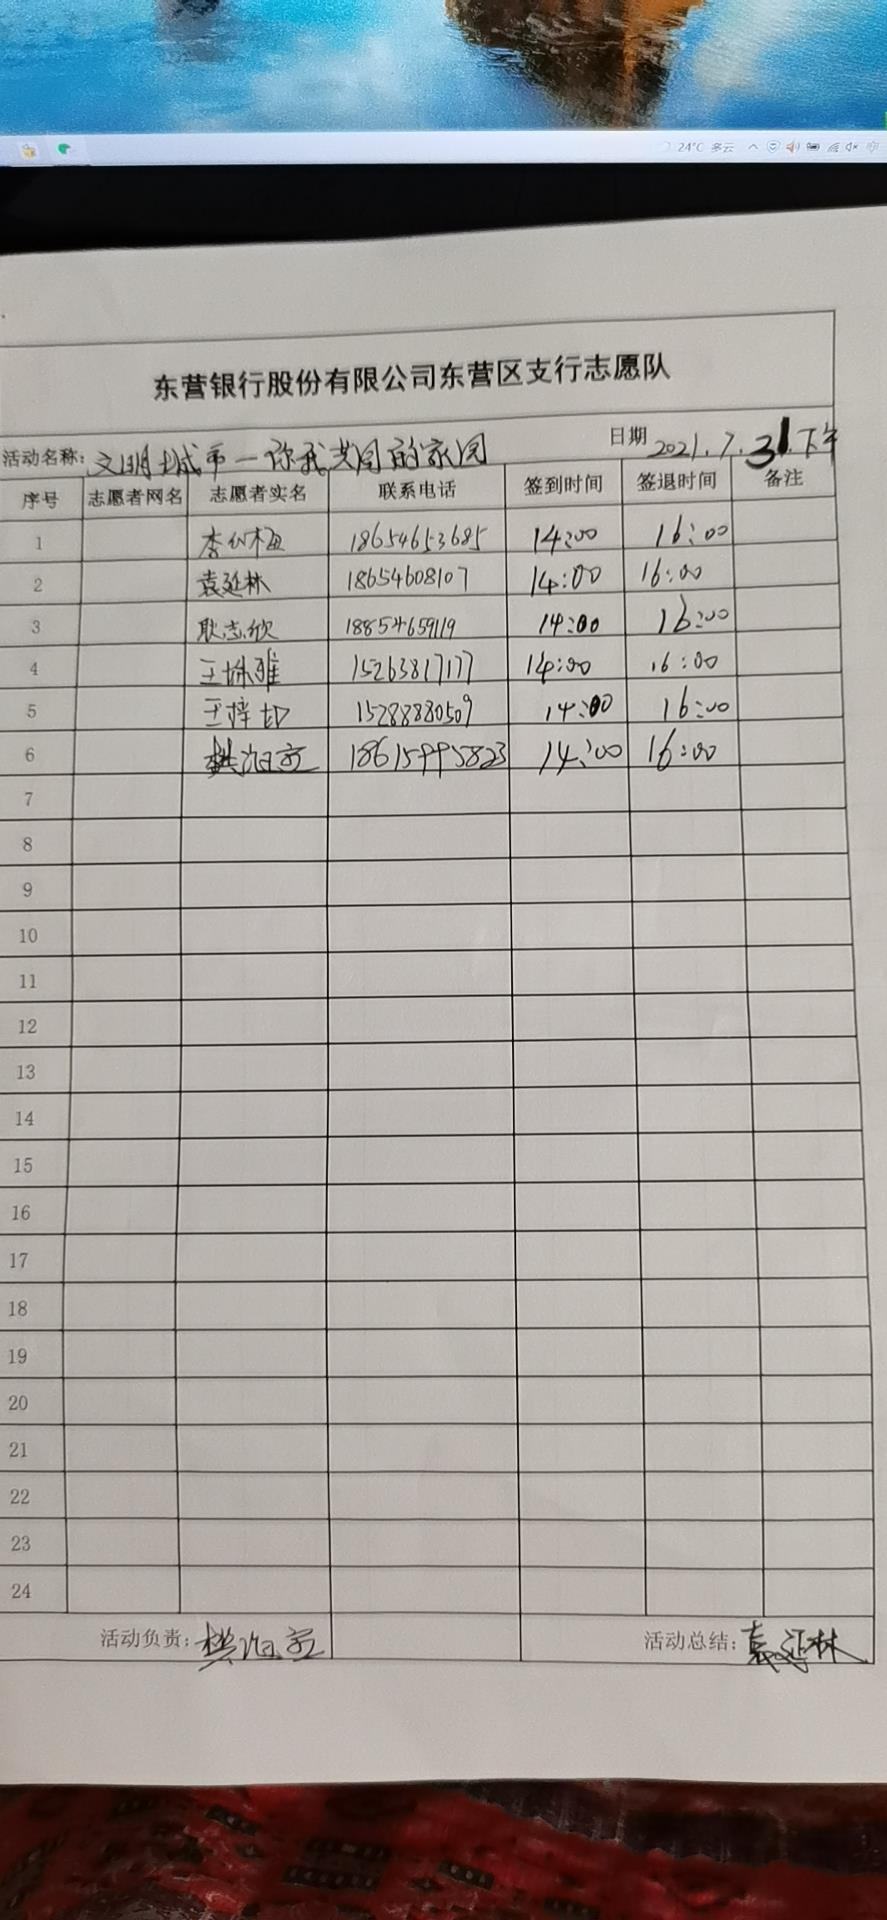 24°C 多云
东营银行股份有限公司东营区支行志愿队
活动名称: 文明城市—你我共同的家园 日期 2021.7.31.下午
序号 志愿者网名 志愿者实名 联系电话 签到时间 签退时间 备注
1 李 梅 18654653685 14:00 16:00
2 袁延林 18654608107 14:00 16:00
3 耿志欣 18854659119 14:00 16:00
4 王 雅 15263817177 14:00 16:00
5 王梓 15288880509 14:00 16:00
6 18615995823 14:00 16:00
7
8
9
10
11
12
13
14
15
16
17
18
19
20
21
22
23
24
活动负责: 活动总结: 袁延林